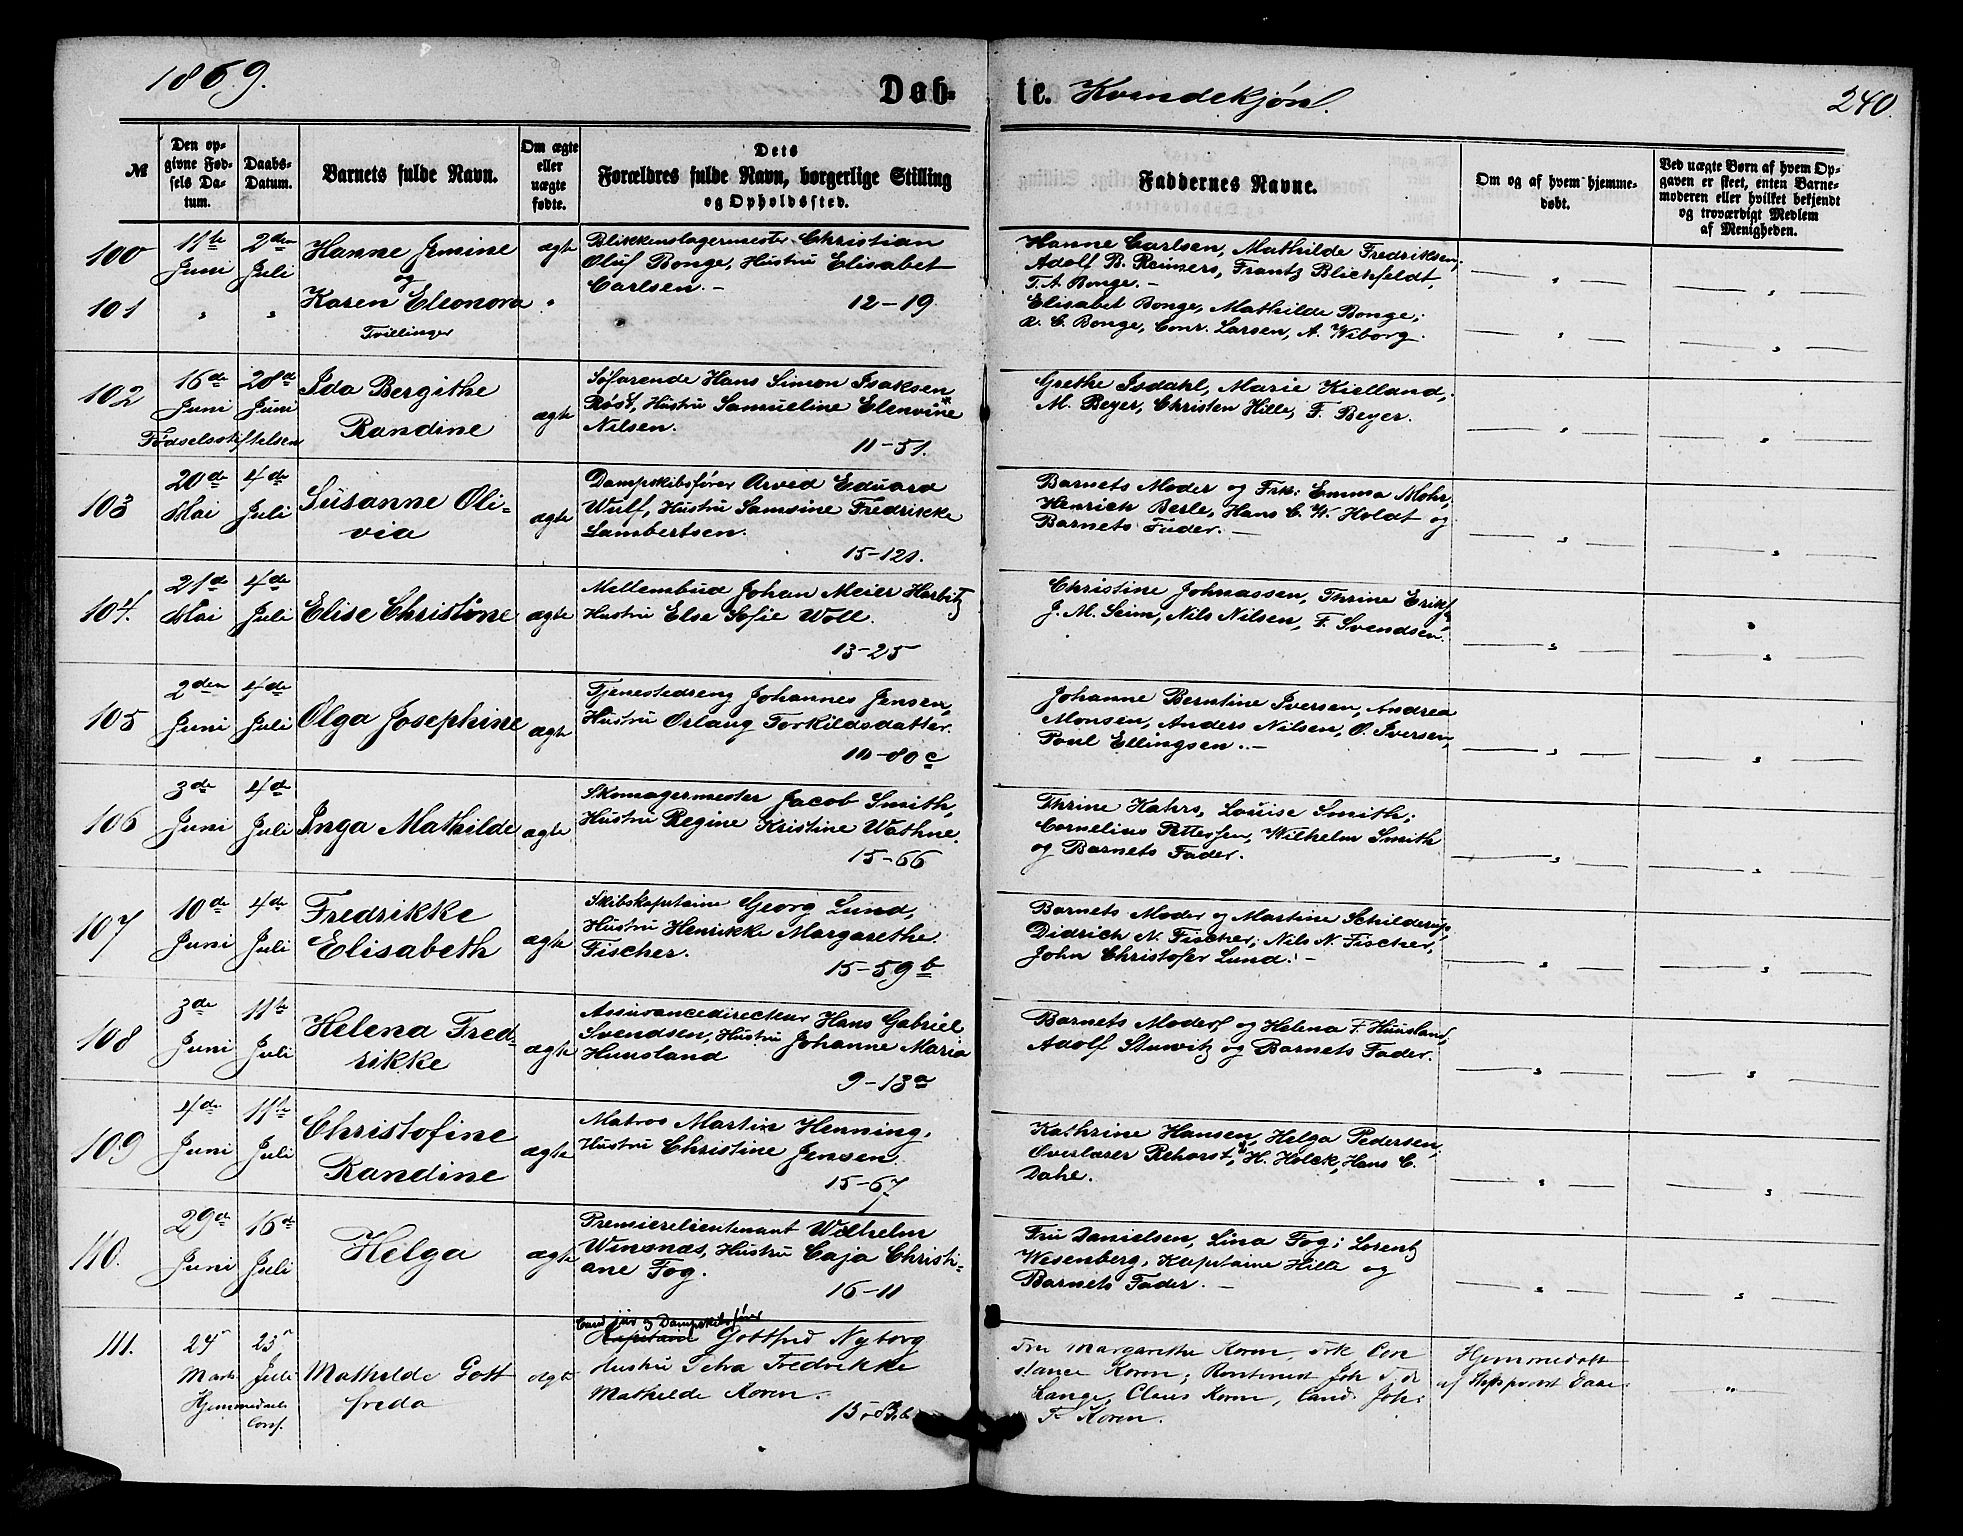 1869.
Døb-
te. Kvindekjøn.
240.
№
Den op-
givne Fød-
sels Da-
tum.
Daabs-
Datum.
Barnets fulde Navn.
Om ægte
eller
uægte
fødte.
Dets
Forældres fulde Navn, borgerlige Stilling
og Opholdssted.
Faddernes Navne.
Om og af hvem hjemme-
døbt.
Ved uægte Børn af hvem Op-
gaven er skeet, enten Barne-
moderen eller hvilket bekjendt
og troværdigt Medlem
af Menigheden.
100
11te
Juni
2den
Juli
Hanne Jemine
og
ægte
Blikkenslagermester Christian
Oluf Bonge, Hustru Elisabet
Carlsen.-
12-19
Hanne Carlsen, Mathilde Fredriksen,
Adolf B. Reimers, Frantz Blichfeldt,
T. A. Bonge.-
101
"
"
Karen Eleonora
Tvillinger
"
Elisabet Bonge, Mathilde Bonge;
R. C. Bonge, Conr. Larsen, A. Wiborg.
102
16de
Juni
28de
Juni
Fødselsstiftelsen
Ida Bergithe
Randine
ægte
Søfarende Hans Simon Isaksen
Røst, Hustru Samueline Elenvine
Nilsen.
11-51.
Grethe Isdahl, Marie Kielland,
M. Beyer, Christen Hille, F. Beyer.
103
20de
Mai
4de
Juli
Susanne Oli-
via
ægte
Dampskibsfører Arved Eduard
Wulf, Hustru Samsine Fredrikke
Lambertsen.
15-121.
Barnets Moder og Frk: Emma Mohr,
Henrich Berle, Hans C. W. Holdt og
Barnets Fader.-
104.
21de
Mai
4de
Juli
Elise Christine
ægte
Mellembud Johan Meier Harbitz
Hustru Else Sofie Woll.
13-25
Christine Johnassen, Thrine Eriks
J. M. Seim, Nils Nilsen, F. Svendsen.
105
2den
Juni
4de
Juli
Olga Josephine
ægte
Tjenestedreng Johannes Jensen,
Hustru Orlaug Torkildsdatter.
10-80c
Johanne Berntine Iversen, Andrea
Monsen, Anders Nilsen, O. Iversen,
Poul Ellingsen.-
106
3de
Juni
4de
Juli
Inga Mathilde
ægte
Skomagermester Jacob Smith,
Hustru Regine Kristine Wathne.
15-66
Thrine Hahrs, Louise Smith;
Cornelius Pettersen, Wilhelm Smith
og Barnets Fader.
107
10de
Juni
4de
Juli
Fredrikke
Elisabeth
ægte
Skibskaptaine Georg Lund,
Hustru Henrikke Margarethe
Fischer.
15-59b
Barnets Moder og Martine Schilderup,
Didrich N. Fischer, Nils N. Fischer,
John Christofer Lund.-
108
3de
Juni
11te
Juli
Helena Fred-
rikke
ægte
Assurancedirecteur Hans Gabriel
Svendsen, Hustru Johanne Maria
Huusland
9-13a
Barnets Moder og Helena F. Huusland,
Adolf Stuwitz og Barnets Fader.
109
4de
Juni
11te
Juli
Christofine
Randine
ægte
Matros Martin Henning,
Hustru Christine Jensen.
15-67
Kathrine Hansen, Helga Pedersen,
Overlærer Rehorst, H. Holck, Hans C.
Dahl.
110.
29de
Juni
16de
Juli
Helga
ægte
Premierelieutenant Wilhelm
Winsnæs, Hustru Caja Christi-
ane Fog.
16-11
Fru Danielsen, Lina Fog; Lorentz
Wesenberg, Kaptaine Hille og
Barnets Fader.-
111.
24
Marts
25
Juli
Hjemmedøbt
Conf.
Mathilde Gott
freda
ægte
Cand jur og Dampskibsfører
Kaptain Gottfred Nyborg
Hustru Petra Fredrikke
Mathilde Koren.
Fru Margarethe Koren, Frk Con
stance Koren; Joh
Lange, Claus Koren, Cand. Joh:
F. Koren.
Hjemmedøbt
af Daae
"